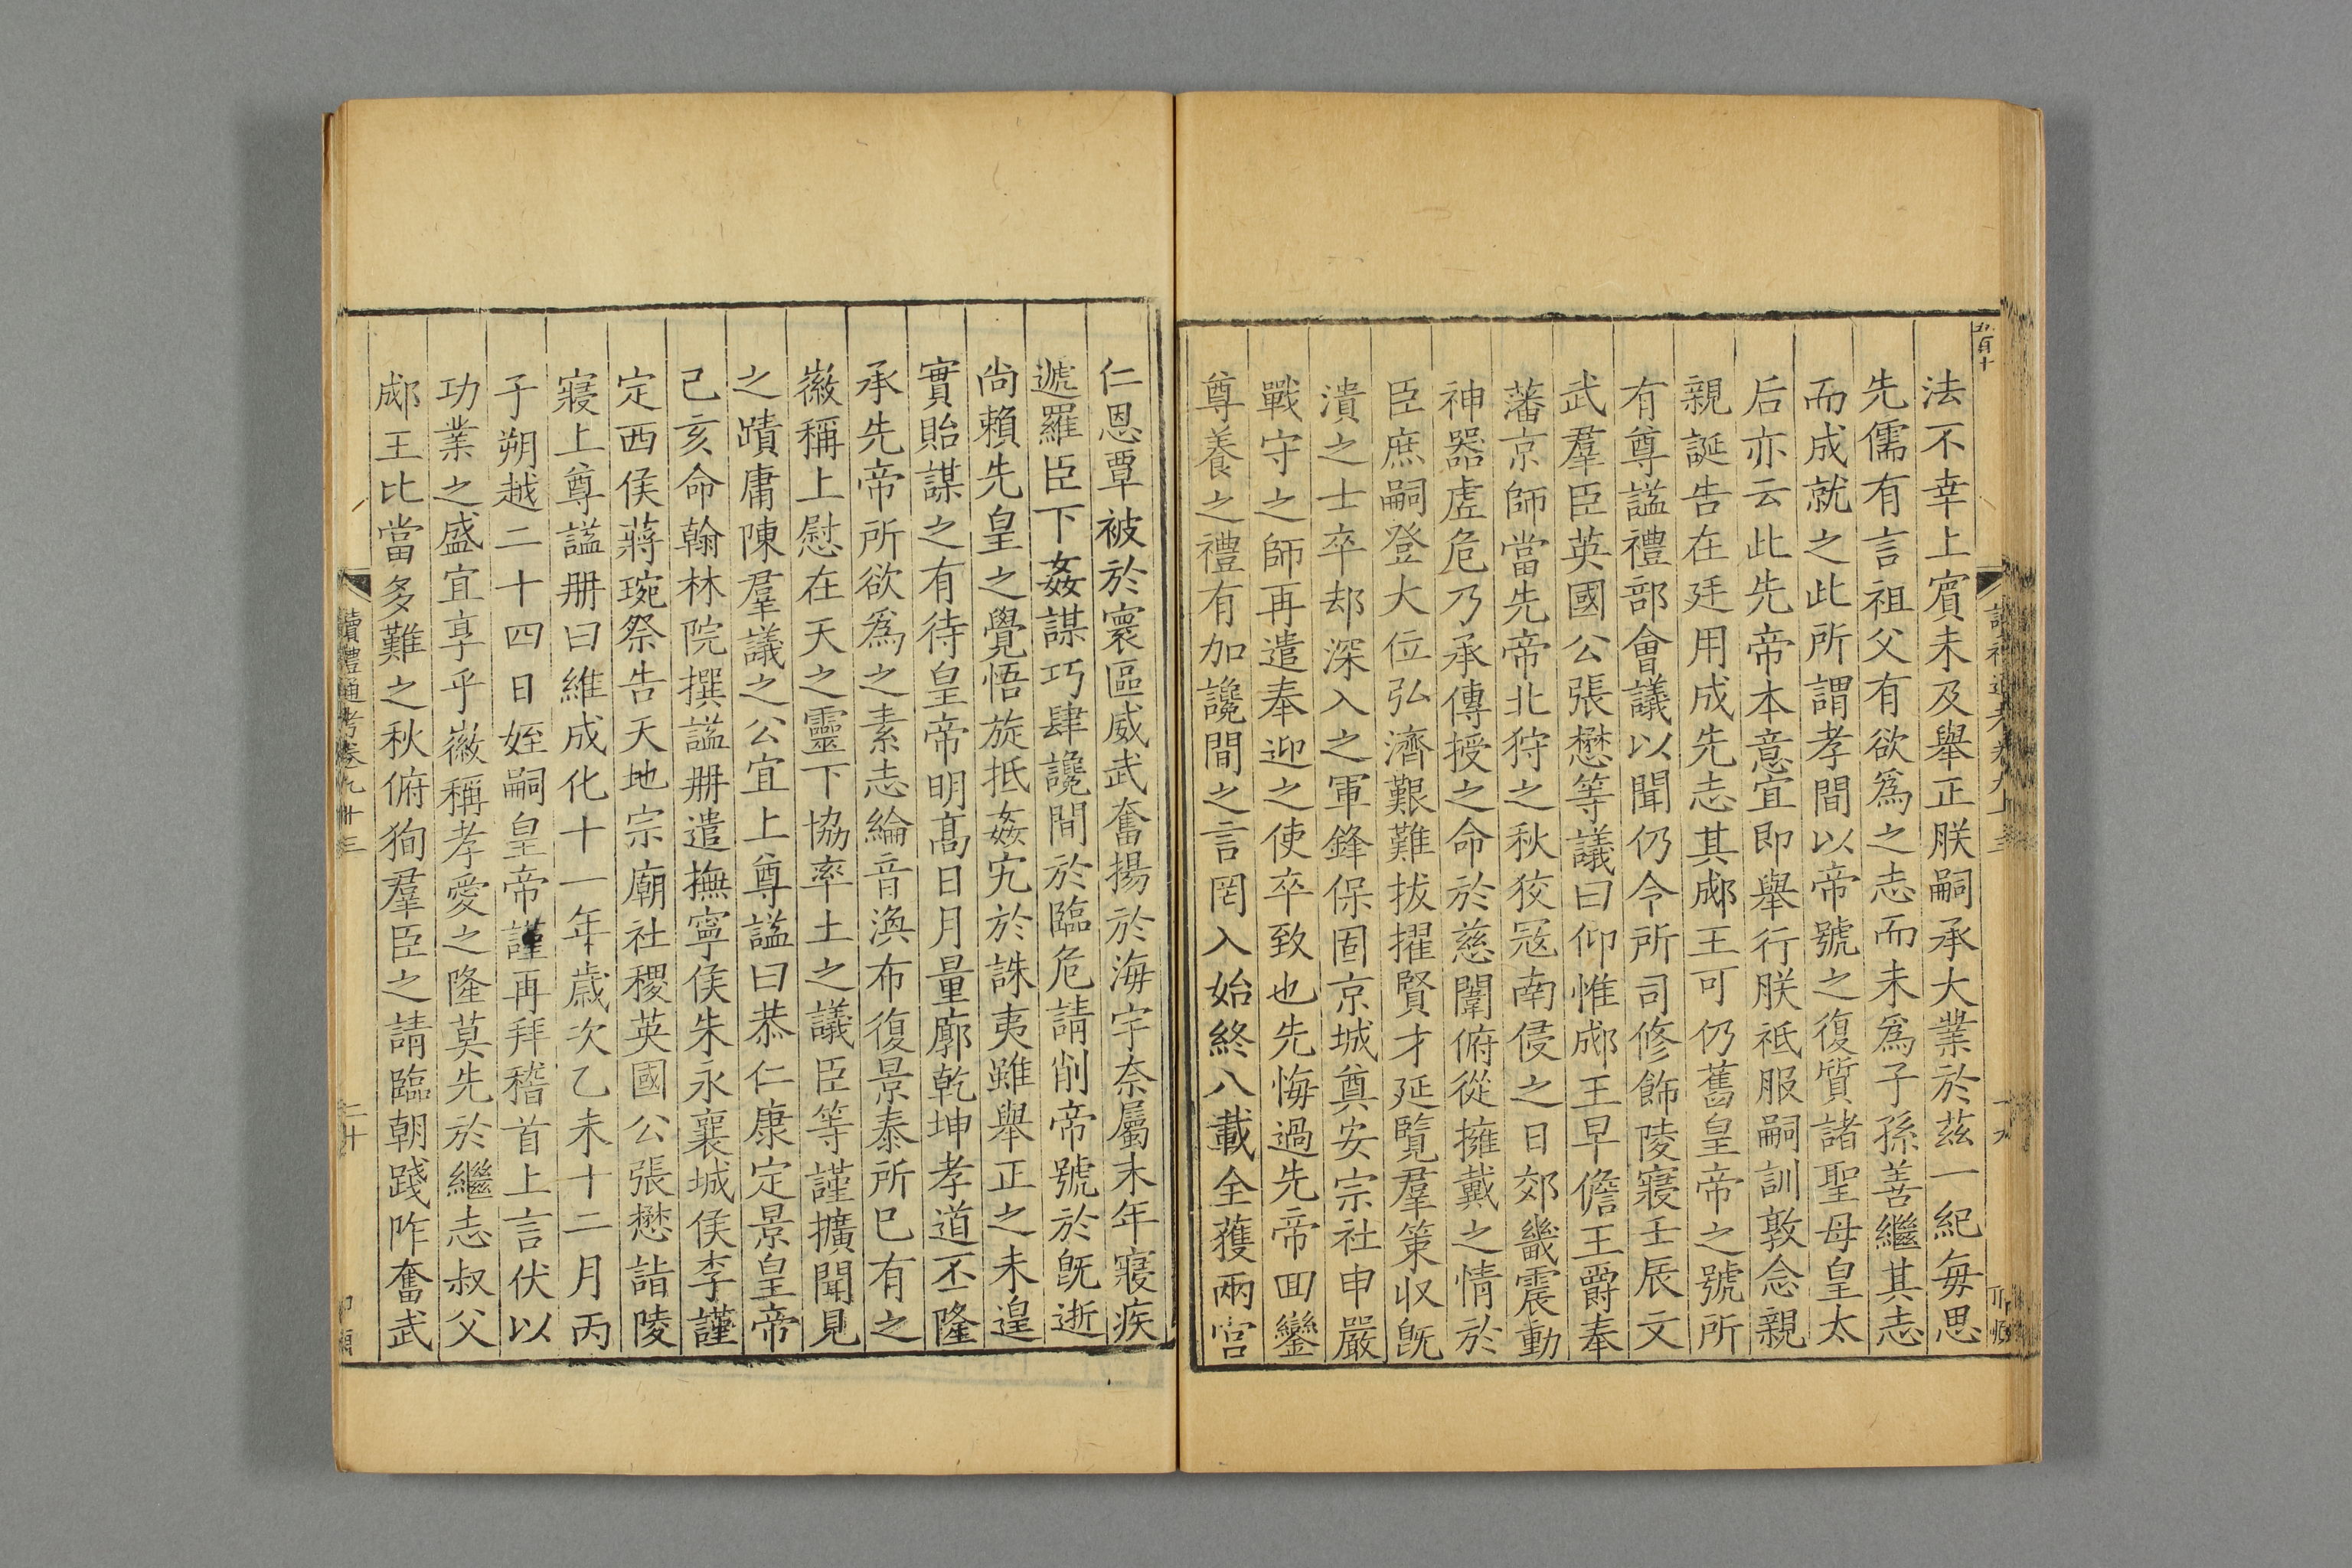 法不幸上賓未及舉正朕嗣承大業於茲一紀每思
先儒有言祖父有欲爲之志而未爲子孫善繼其志
而成就之此所謂孝間以帝號之復質諸聖母皇太
后亦云此先帝本意宜即舉行朕祗服嗣訓敦念親
親誕告在廷用成先志其郕王可仍舊皇帝之號所
有尊諡禮部會議以聞仍令所司修飾陵寢壬辰文
武羣臣英國公張懋等議曰仰惟郕王早儋王爵奉
藩京師當先帝北狩之秋狡冦南侵之日郊畿震動
神器虗危乃承傳授之命於慈闈俯從擁戴之情於
臣庶嗣登大位弘濟艱難拔擢賢才延覽羣策収旣
潰之士卒却深入之軍鋒保固京城奠安宗社申嚴
戰守之師再遣奉迎之使卒致也先悔過先帝囬鑾
尊養之禮有加讒間之言罔入始終八載全獲兩宫
仁恩覃被於寰區威武奮揚於海宇奈屬末年寢疾
遞羅臣下姦謀巧肆讒間於臨危請削帝號於旣逝
尚賴先皇之覺悟旋抵姦宄於誅夷雖舉正之未遑
實貽謀之有待皇帝明髙日月量廓乾坤孝道丕隆
承先帝所欲爲之素志綸音渙布復景泰所已有之
徽稱上慰在天之靈下協率土之議臣等謹擴聞見
之蹟庸陳羣議之公宜上尊諡曰恭仁康定景皇帝
己亥命翰林院撰諡册遣撫寧侯朱永襄城侯李謹
定西侯蔣琬祭告天地宗廟社稷英國公張懋詣陵
寢上尊諡册曰維成化十一年歲次乙未十二月丙
子朔越二十四日姪嗣皇帝謹再拜稽首上言伏以
功業之盛宜享乎徽稱孝愛之隆莫先於繼志叔父
郕王比當多難之秋俯狥羣臣之請臨朝踐阼奮武
讀禮通考卷九十三
二十